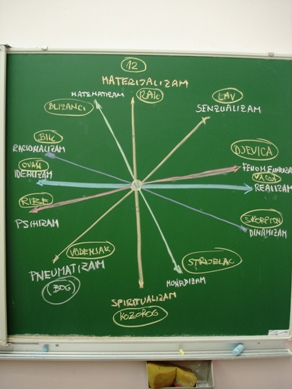 12
MATERIJALIZAM
MATEMATIZAM
RAK
LAV
SENZUALIZAM
BLIZANCI
BIK
RACIONALIZAM
DJEVICA
FENOMENALIZAM
OVAN
IDEALIZAM
VAGA
REALIZAM
RIBE
PSIHIZAM
ŠKORPION
DINAMIZAM
VODENJAK
PNEUMATIZAM
BOG
STRIJELAC
MONADIZAM
SPIRITUALIZAM
KOZOROG